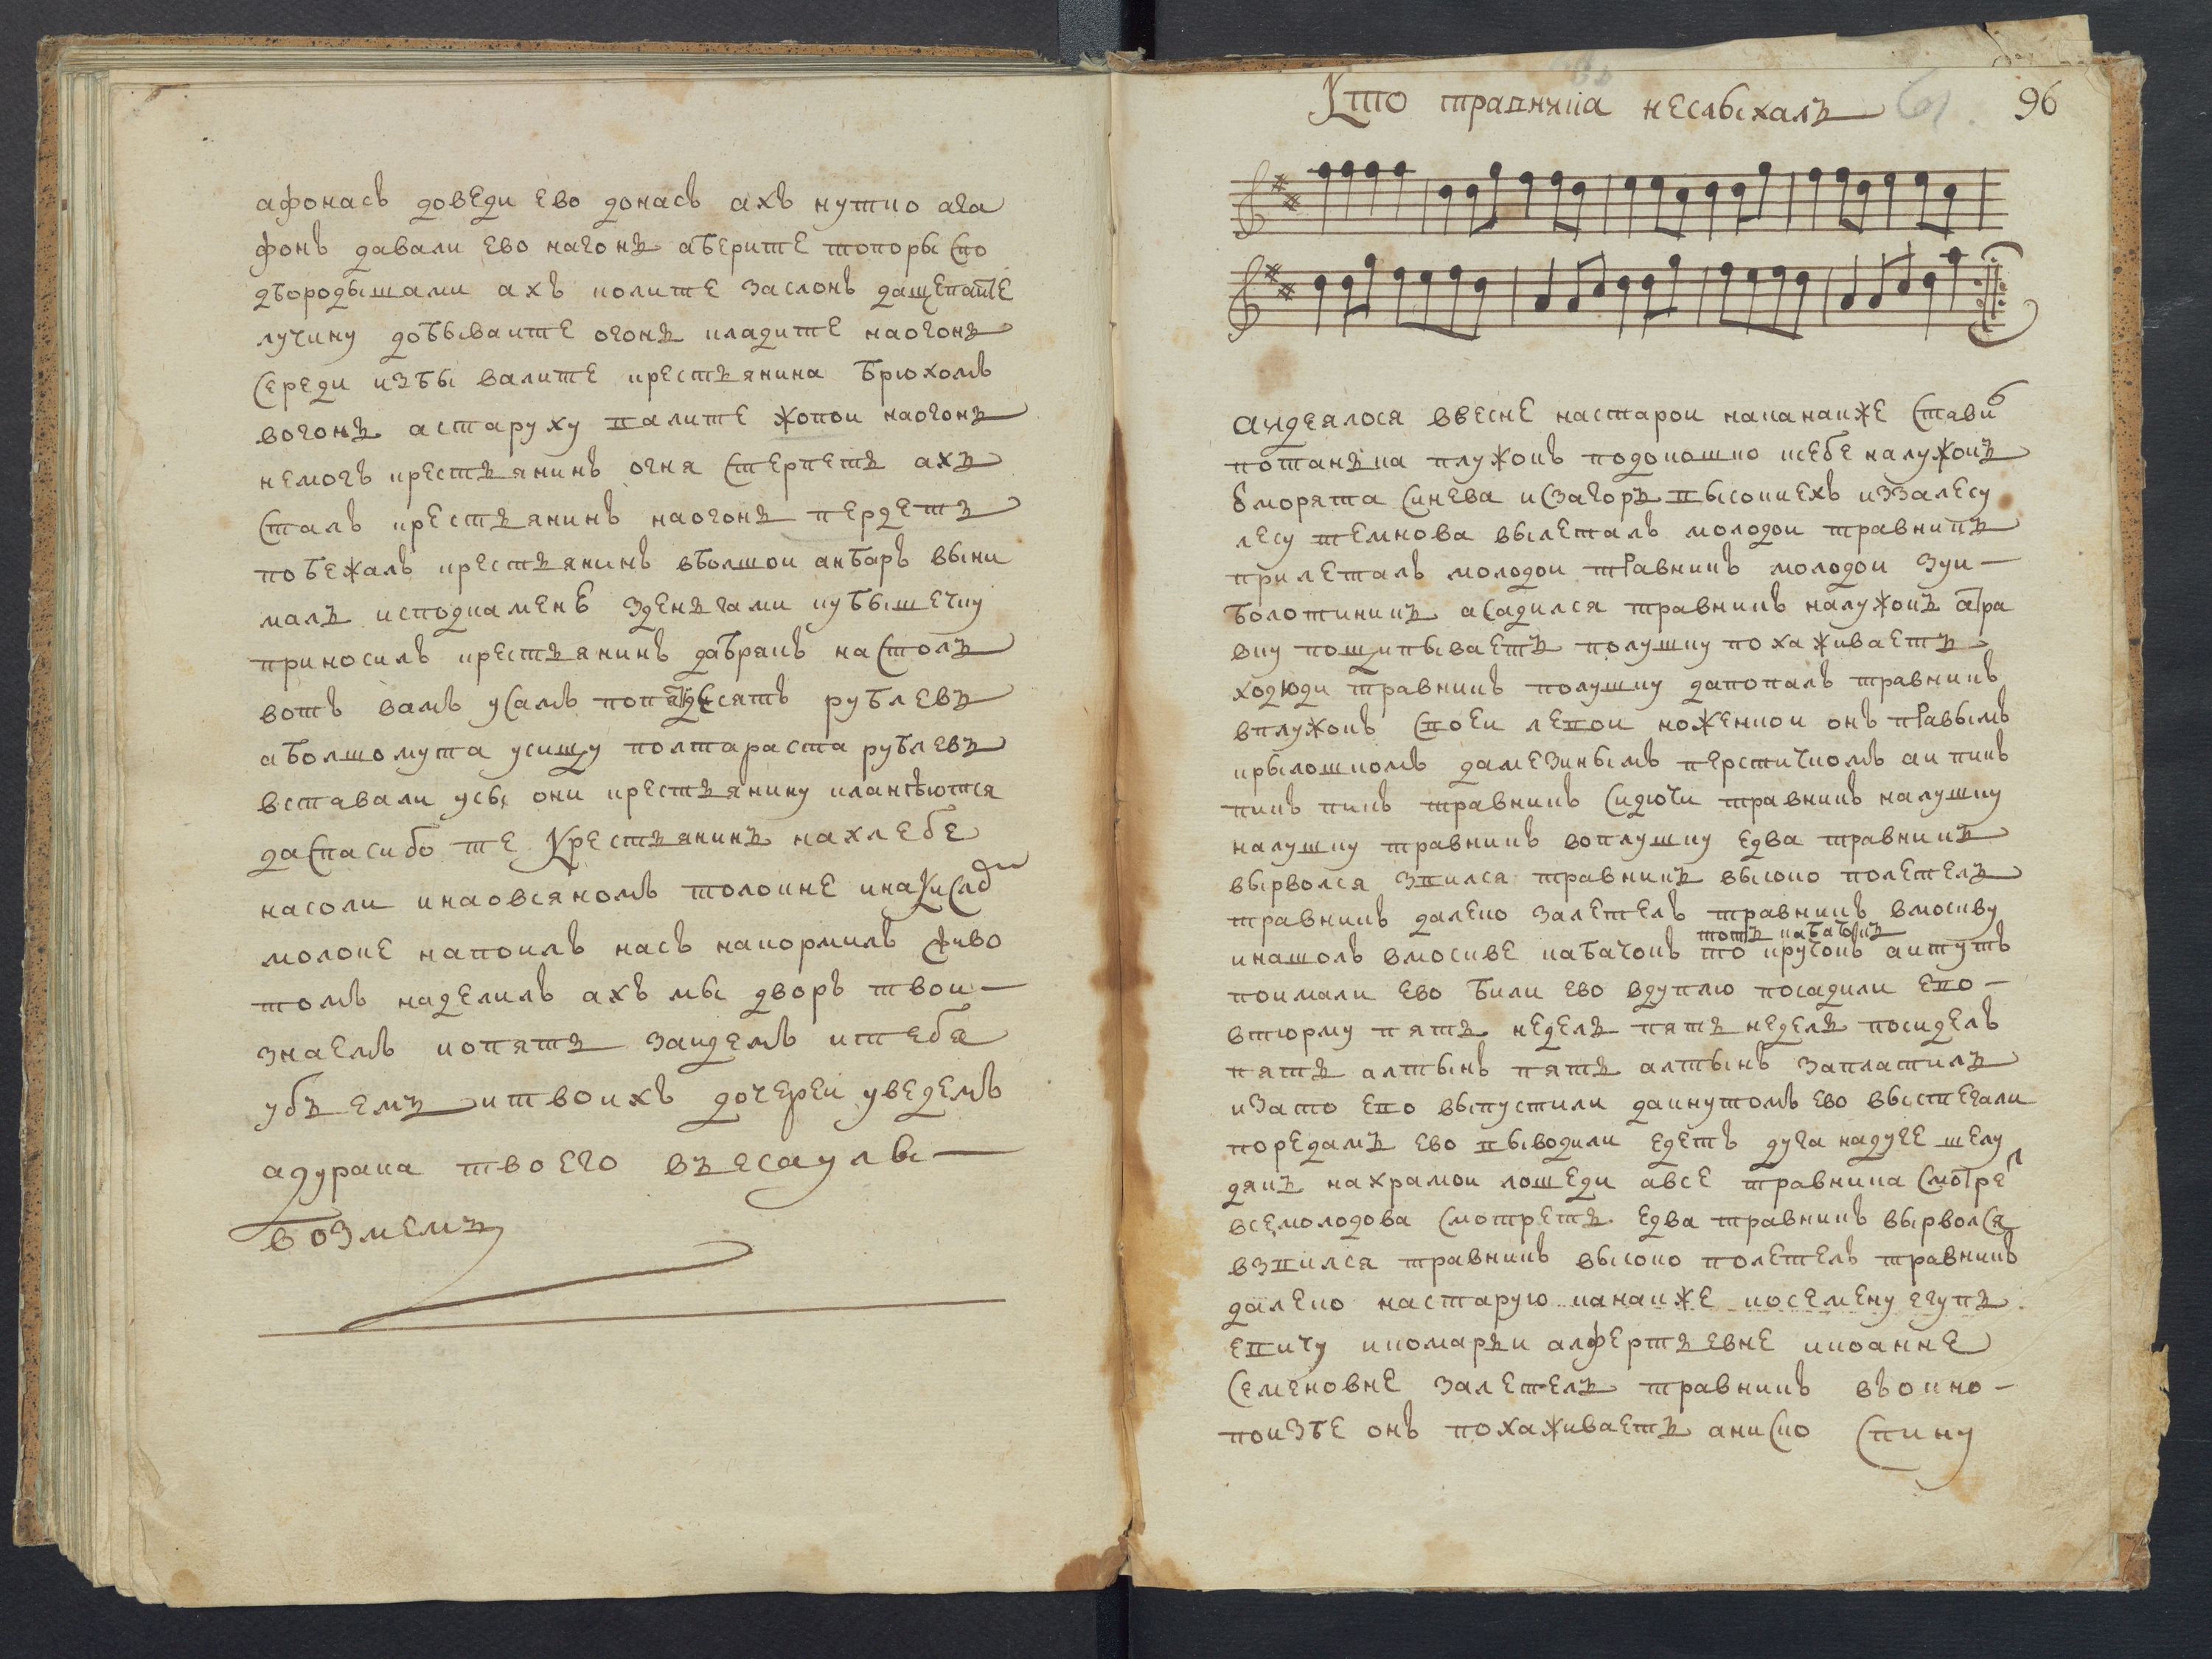 афонасъ доведи ево донасъ ахъ нутко ага
фонъ давали ево нагонь аберите топоры спо
дбородышами ахъ колите заслонъ дащепаите
лучину добываите огонь кладите наогонь
середи избы валите крестьянина брюхомъ
вогонь астаруху палите жопои наогонь
немогъ крестьянинъ огня стерпеть ахъ
сталъ крестьянинъ наогонь пердеть
побежалъ крестьянинъ вболшои анбаръ выни
малъ исподкаменю зденьгами кубышечку
приносилъ крестьянинъ дабрякъ настолъ
вотъ вамъ усамъ попядесятъ рублевъ
аболшомута усищу полтараста рублевъ
вставали усы они крестьянину кланеются
даспасибо те крестьянинъ нахлебе
насоли инаовсяномъ толокне
молоке напоилъ насъ накормилъ живо
томъ наделилъ ахъ мы дворъ твои
знаемъ иопять заидемъ ктебе
убьемъ итвоихъ дочереи уведемъ
адурака твоего въесаулы
возмемъ
Кто травника неслыхалъ 61. 96
аидеялося ввесне настарои наканаиже ставил
потанька плужокъ подокошко ксебе налужокъ
уморята синева исзагоръ высокиехъ иззалесу
лесу темнова вылеталъ молодои травникъ
прилеталъ молодои травникъ молодои зуи
болотиникъ асадился травникъ налужокъ атра
вку пощипываетъ полушку похаживаетъ
ходючи травникъ полушку дапопалъ травникъ
вплужокъ своеи левои ноженкои онъ правымъ
крылошкомъ дамезинымъ перстичкомъ аи пикъ
пикъ пикъ травникъ сидючи травникъ налушку
налушку травникъ воплушку едва травникъ
вырволся звился травникъ высоко полетелъ
травникъ далеко залетелъ травникъ вмоскву
тотъ кабачокъ
инашолъ вмоскве кабачокъ то кручокъ аитутъ
поимали ево били ево вдуплю посадили ево
втюрму пять недель пять недель посиделъ
пять алтынъ пять алтынъ заплатилъ
изато ево выпустили даикнутомъ ево выстегали
поредамъ ево выводили едетъ дуга надуге шелу
дякъ нахрамои лошеди авсе травника смотрел
всемолодова смотреть едва травникъ вырволся
взвился травникъ высоко полетелъ травникъ
далеко настарую канаиже косемену егупь
евичу икомарьи алфертьевне икоанне
семеновне залетелъ травникъ въокно
поизбе онъ похаживаетъ аниско спину